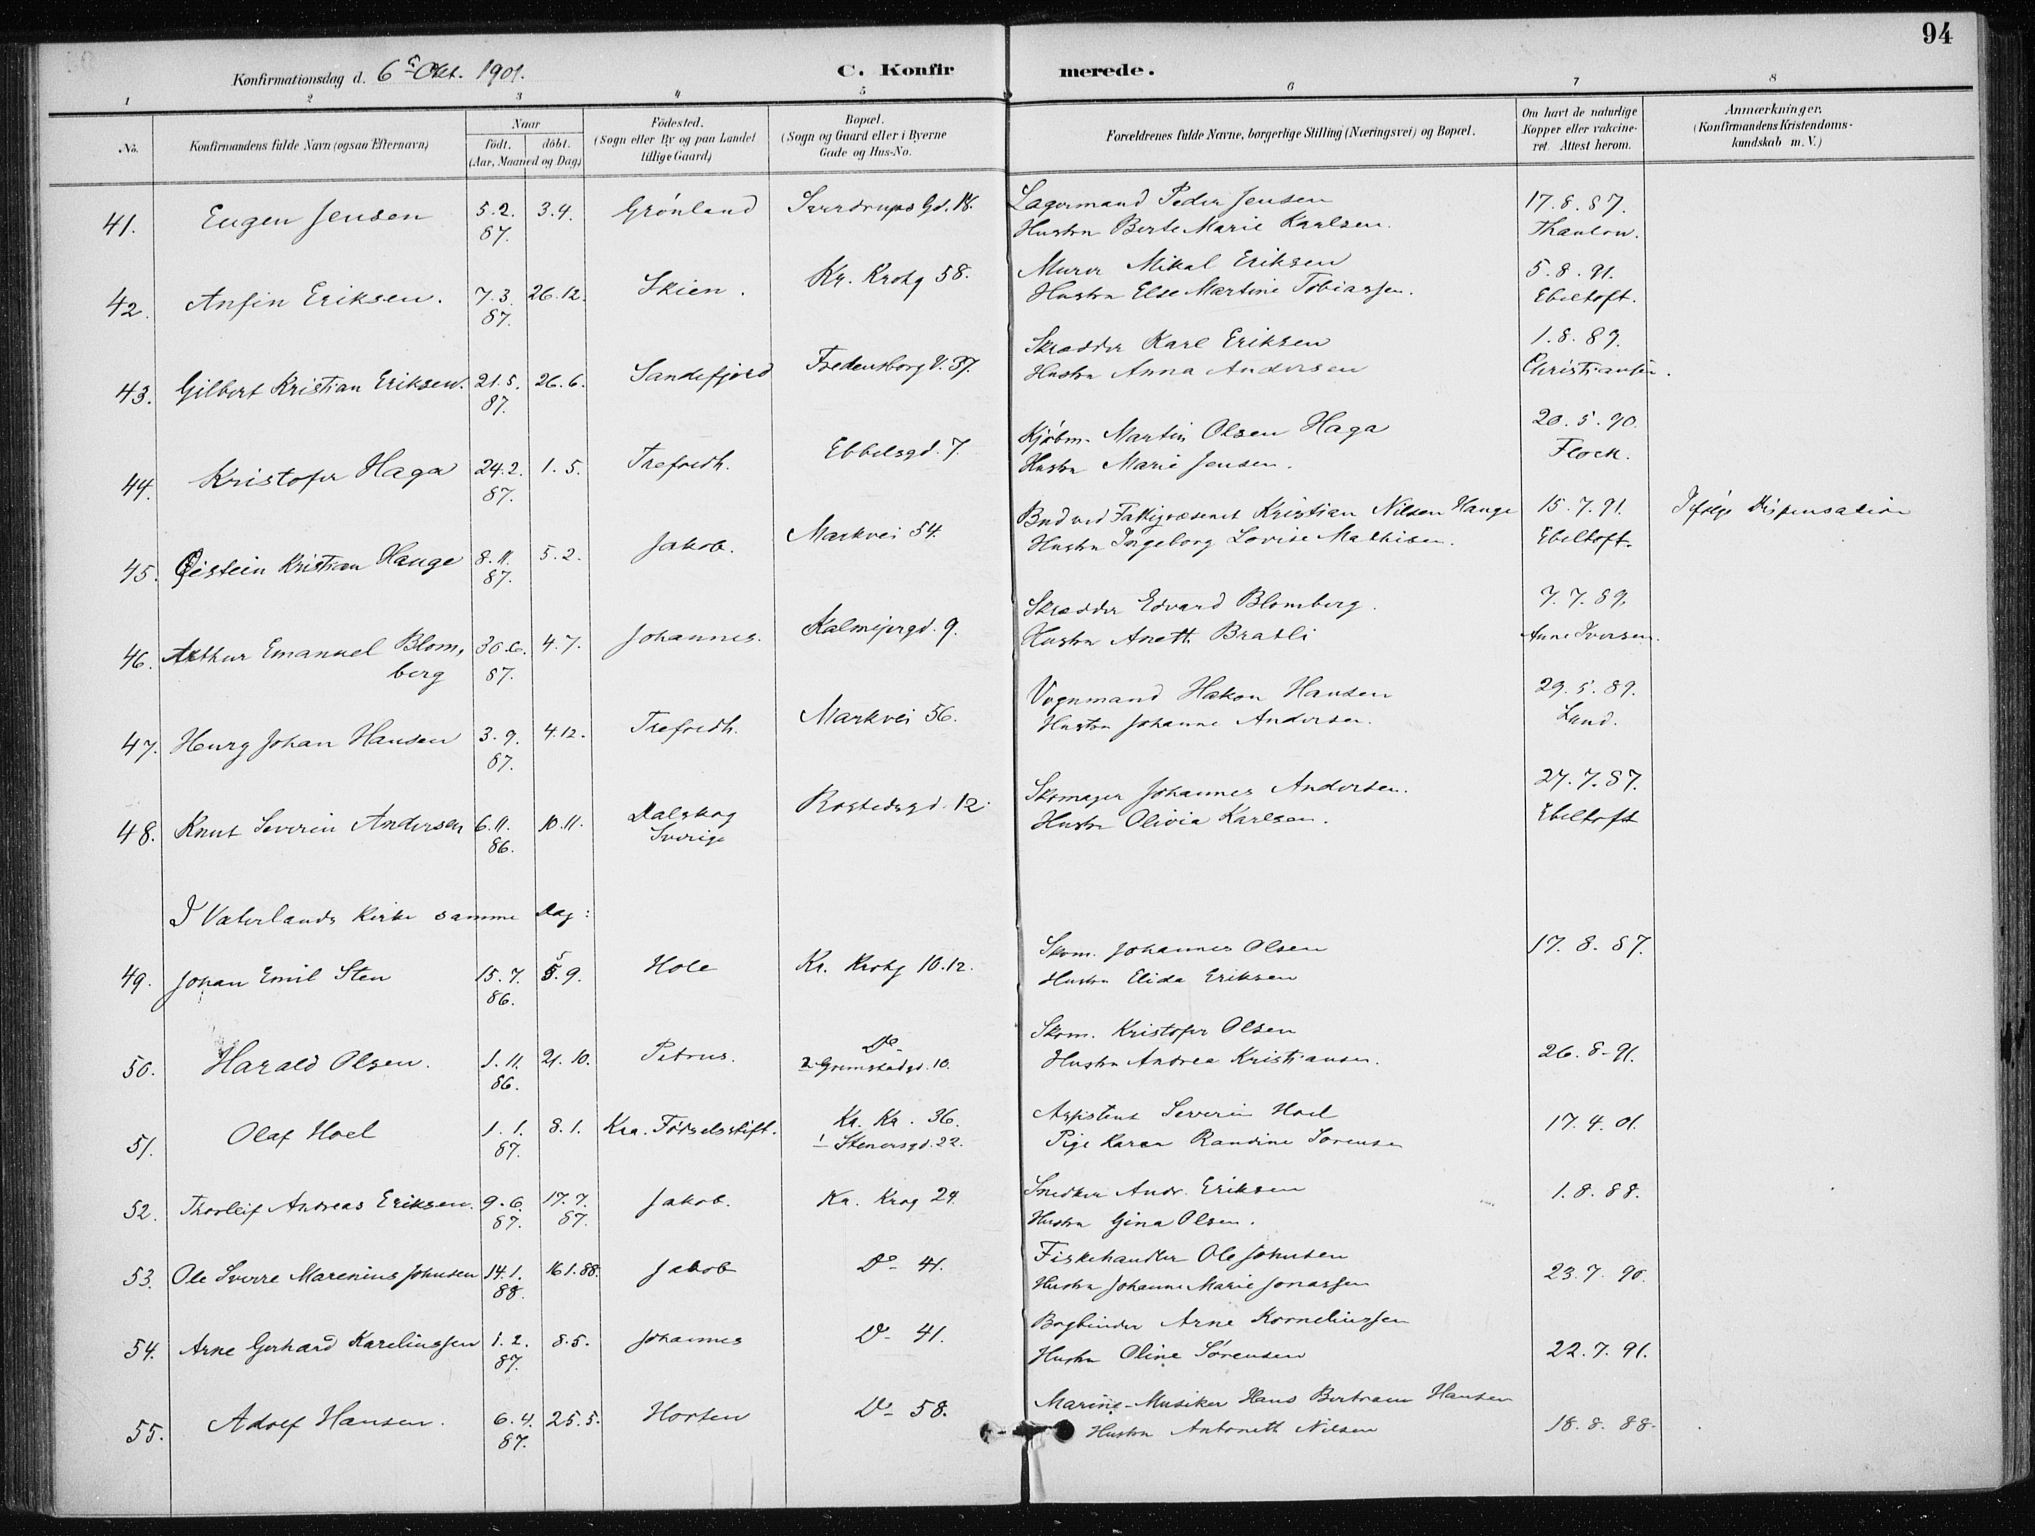 94
Konfirmationsdag d. 6 Okt. 1901.
C. Konfirmerede.
1 2 3 4 5 6 7 8
No.
Konfirmandens fulde Navn (ogsaa Efternavn)
Naar
født. døbt.
(Aar, Maaned og Dag)
Fødested.
(Sogn eller By og paa Landet
tillige Gaard)
Bopæl.
(Sogn og Gaard eller i Byerne
Gade og Hus-No.
Forældrenes fulde Navne, borgerlige Stilling (Næringsvei) og Bopæl.
Om havt de naturlige
Kopper eller vakcine-
ret. Attest herom.
Anmærkninger.
(Konfirmandens Kristendoms-
kundskab m. V.)
41. Eugen Jensen 5.2. 3.4. Grønland Sverdrups Gd. 18. Lagermand Peder Jensen 17.8.87.
87. Hustru Berte Marie Karlsen. Thaulow.
42. Anfin Eriksen. 7.3. 26.12. Skien. Kr. Krohg 58. Murer Mikal Eriksen 5.8.91.
87. Hustru Else Martine Tobiassen. Ebeltoft.
43. Gilbert Kristian Eriksen. 21.5. 26.6. Sandefjord Fredensborg V. 37. Skrædder Karl Eriksen 1.8.89.
87. Hustru Anna Andersen Christiansen.
44. Kristofer Haga 24.2. 1.5. Trefoldh. Ebbelsgd. 7 Kjøbm. Martin Olsen Haga 20.5.90.
87. Hustru Marie Jensen. Flock.
45. Øistein Kristian Hauge 8.11. 5.2. Jakob. Markvei 54. Bud ved Fattigvæsenet Kristian Nilsen Hauge 15.7.91. Ifølge Dispensation
87. Hustru Ingeborg Lovise Mathisen. Ebeltoft.
46. Arthur Emanuel Blom- 30.6. 4.7. Johannes. Kalmeyergd. 9. Skrædder Edvard Blomberg. 7.7.89.
berg 87. Hustru Anette Bratli Anne Iversen.
47. Henry Johan Hansen 3.9. 4.12. Trefoldh. Markvei 56. Vognmand Hakon Hansen 29.5.89.
87. Hustru Johanne Andersen. Lund.
48. Knut Severin Andersen 6.11. 10.11. Dalskog Rostedsgd. 12. Skomager Johannes Andersen. 27.7.87.
86. Sverige Hustru Olivia Karlsen. Ebeltoft
I Vaterlands Kirke samme Dag:
49. Johan Emil Sten 15.7. 5.9. Hole Kr. Krohg 10.12. Skom. Johannes Olsen 17.8.87.
86. Hustru Elida Eriksen
50. Harald Olsen. 1.11. 21.10. Petrus. Do Skom. Kristofer Olsen 26.8.91.
86. Grimstadgd. 10. Hustru Andrea Kristiansen.
51. Olaf Hoel 1.1. 8.1. Kra. Fødselsstift. Kr. Kr. 36. Assistent Severin Hoel 17.4.01.
87. Stenersgd. 22. Pige Karen Randine Sorensen
52. Thorleif Andreas Eriksen. 9.6. 17.7. Jakob. Kr. Krog 24. Snedker Andr. Eriksen 1.8.88.
87. 87. Hustru Gina Olsen.
53. Ole Sverre Marenius Johnsen 14.1. 16.1.88. Jakob Do 41. Fiskehandler Ole Johnsen 23.7.90.
88. Hustru Johanne Marie Jonassen
54. Arne Gerhard Karelinssen 1.2. 8.5. Johannes Do 41. Bogbinder Arne Korneliussen 22.7.91.
87. Hustru Oline Sørensen
55. Adolf Hansen. 6.4. 25.5. Horten Do 58. Marine-Musiker Hans Bertram Hansen 18.8.88.
87. Hustru Antonette Nilsen